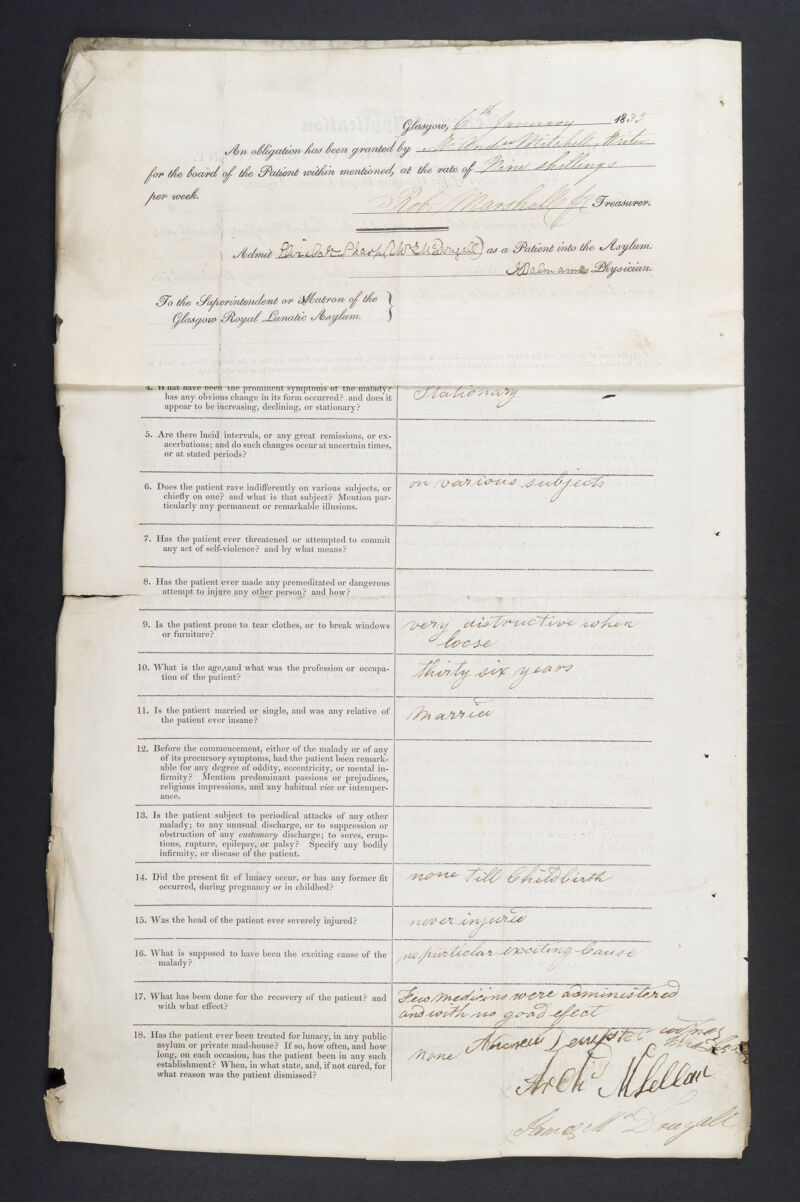 Glasgow, 6th January 1835
An obligation has been granted by Mr Andw Mitchell, Writer
for the board of the Patient within mentioned, at the rate of Nine shillings
per week.
Robt Marshall Jr Treasurer.
Admit Sharp (Mrs McDougall) as a Patient into the Asylum.
Physician.
To the Superintendent or Matron of the
Glasgow Royal Lunatic Asylum.
4. What have been the prominent symptoms of the malady?
has any obvious change in its form occurred? and does it
appear to be increasing, declining, or stationary?
Stationary
5. Are there lucid intervals, or any great remissions, or ex-
acerbations; and do such changes occur at uncertain times,
or at stated periods?
6. Does the patient rave indifferently on various subjects, or
chiefly on one? and what is that subject? Mention par-
ticularly any permanent or remarkable illusions.
on various subjects
7. Has the patient ever threatened or attempted to commit
any act of self-violence? and by what means?
8. Has the patient ever made any premeditated or dangerous
attempt to injure any other person? and how?
9. Is the patient prone to tear clothes, or to break windows
or furniture?
very distructive when
loose
10. What is the age, and what was the profession or occupa-
tion of the patient?
thirty six years
11. Is the patient married or single, and was any relative of
the patient ever insane?
Married
12. Before the commencement, either of the malady or of any
of its precursory symptoms, had the patient been remark-
able for any degree of oddity, eccentricity, or mental in-
firmity? Mention predominant passions or prejudices,
religious impressions, and any habitual vice or intemper-
ance.
13. Is the patient subject to periodical attacks of any other
malady; to any unusual discharge, or to suppression or
obstruction of any customary discharge; to sores, erup-
tions, rupture, epilepsy, or palsy? Specify any bodily
infirmity, or disease of the patient.
14. Did the present fit of lunacy occur, or has any former fit
occurred, during pregnancy or in childbed?
none till Childbirth
15. Was the head of the patient ever severely injured?
never injured
16. What is supposed to have been the exciting cause of the
malady?
no particlar exciting Cause
17. What has been done for the recovery of the patient? and
with what effect?
Few medicins were administered
and with no good efect
18. Has the patient ever been treated for lunacy, in any public
asylum or private mad-house? If so, how often, and how
long, on each occasion, has the patient been in any such
establishment? When, in what state, and, if not cured, for
what reason was the patient dismissed?
none
Andrew Dempster witness
Archd McLellan
James McDougall